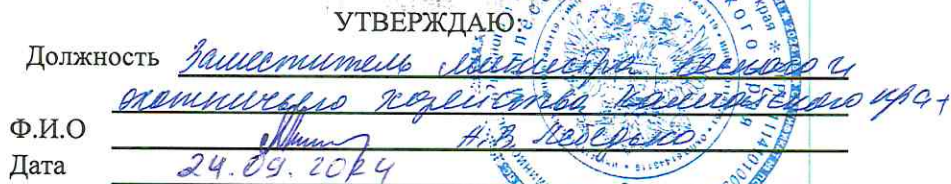 УТВЕРЖДАЮ:
Должность Заместитель министра лесного и
охотничьего хозяйства Камчатского края
Ф.И.О А.В.
Дата 24.09.2024